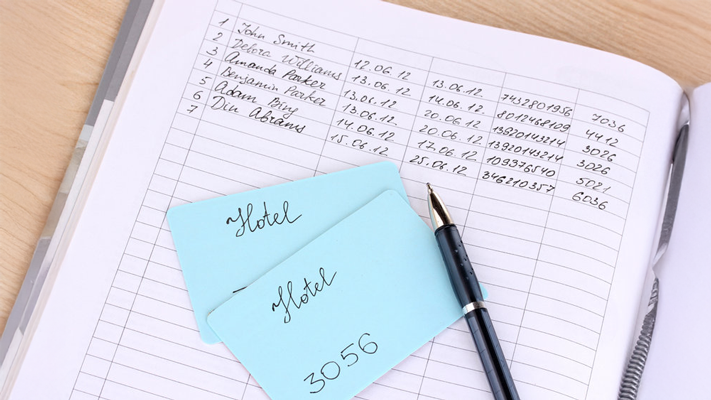 1 John Smith 12.06.12 13.06.12 7432801956 7036
2 Debora Williams 13.06.12 14.06.12 8012468109 4412
3 Amanda Parker 13.06.12 20.06.12 13920143214 3026
4 Benjamin Parker 13.06.12 20.06.12 13920143214 3026
5 Adam Bing 14.06.12 17.06.12 109376540 5021
6 Din Abrams 15.06.12 25.06.12 346210357 6036
7
Hotel
Hotel
3056